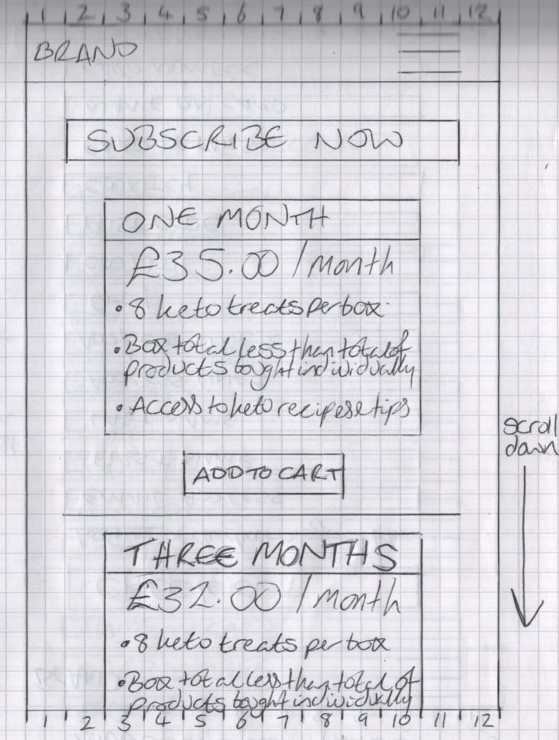 1 2 3 4 5 6 7 8 9 10 11 12
BRAND
SUBSCRIBE NOW
ONE MONTH
£35.00 / month
• 8 keto treats per box
• Box total less than total of
products bought individually
• Access to keto recipes & tips
ADD TO CART
scroll
down
THREE MONTHS
£32.00 / month
• 8 keto treats per box
• Box total less than total of
products bought individually
1 2 3 4 5 6 7 8 9 10 11 12